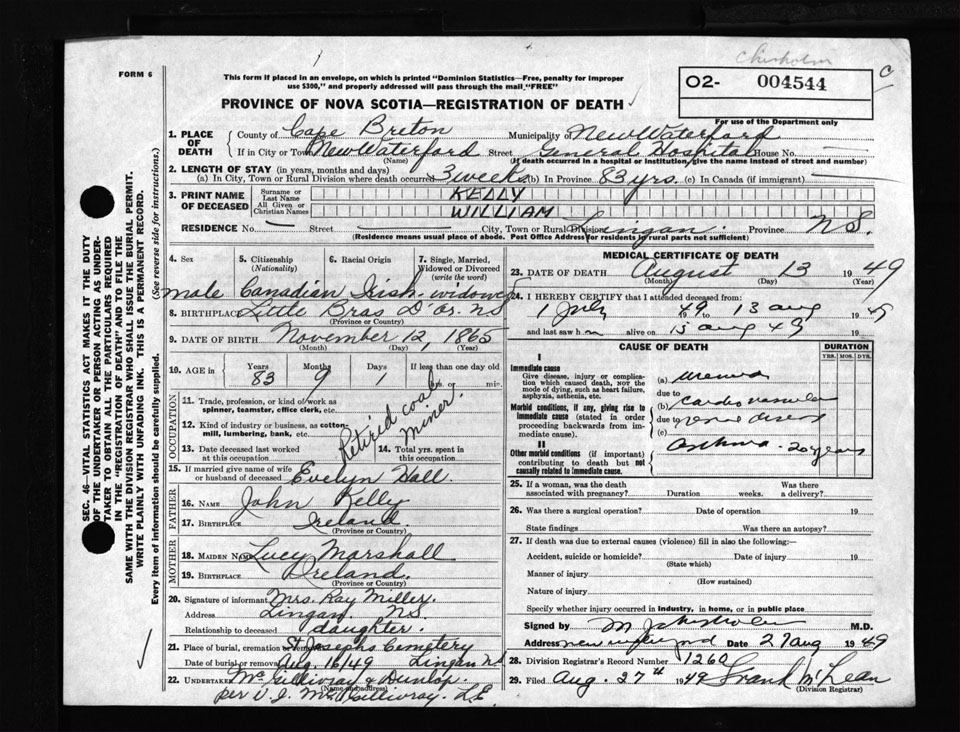 Chisholm
C
FORM 6
This form if placed in an envelope, on which is printed "Dominion Statistics—Free, penalty for improper
use $300," and properly addressed will pass through the mail "FREE"
02- 004544
For use of the Department only
PROVINCE OF NOVA SCOTIA—REGISTRATION OF DEATH
1. PLACE OF DEATH
County of Cape Breton Municipality of New Waterford
If in City or Town New Waterford Street General Hospital House No.
(Name) (If death occurred in a hospital or institution, give the name instead of street and number)
2. LENGTH OF STAY (in years, months and days)
(a) In City, Town or Rural Division where death occurred 3 weeks (b) In Province 83 yrs. (c) In Canada (if immigrant)
3. PRINT NAME OF DECEASED
Surname or Last Name KELLY
All Given or Christian Names WILLIAM
RESIDENCE No. Street City, Town or Rural Division Lingan. Province N.S.
(Residence means usual place of abode. Post Office Address for residents in rural parts not sufficient)
4. Sex 5. Citizenship (Nationality) 6. Racial Origin 7. Single, Married, Widowed or Divorced (write the word)
male Canadian Irish. widower
8. BIRTHPLACE Little Bras D'Or. NS
(Province or Country)
9. DATE OF BIRTH November 12, 1865
(Month) (Day) (Year)
10. AGE in Years Months Days If less than one day old
83 9 1 hrs. or min.
OCCUPATION
11. Trade, profession, or kind of work as
spinner, teamster, office clerk, etc.
12. Kind of industry or business, as cotton-
mill, lumbering, bank, etc.
13. Date deceased last worked
at this occupation
14. Total yrs. spent
in this occupation
Retired coal
Miner.
15. If married give name of wife
or husband of deceased Evelyn Hall.
FATHER
16. NAME John Kelly
17. BIRTHPLACE Ireland.
(Province or Country)
MOTHER
18. MAIDEN NAME Lucy Marshall
19. BIRTHPLACE Ireland.
(Province or Country)
20. Signature of informant Mrs. Ray Miller.
Address Lingan. NS.
Relationship to deceased daughter.
21. Place of burial, cremation or removal St Josephs Cemetery
Date of burial or removal Aug. 16/49 Lingan NS
22. UNDERTAKER McGillivray & Dunlop.
(Name and address)
per V. J. McGillivray. L.E.
MEDICAL CERTIFICATE OF DEATH
23. DATE OF DEATH August 13 1949
(Month) (Day) (Year)
24. I HEREBY CERTIFY that I attended deceased from:
1 July 1949 to 13 aug 1949
and last saw h m alive on 13 aug 49
CAUSE OF DEATH DURATION
YRS. MOS. DYS.
I
Immediate cause
Give disease, injury or complica-
tion which caused death, not the
mode of dying, such as heart failure,
asphyxia, asthenia, etc.
(a) uremia
due to
Morbid conditions, if any, giving rise to
immediate cause (stated in order
proceeding backwards from im-
mediate cause).
(b) cardio vascular
due to renal disease
(c)
II
Other morbid conditions (if important)
contributing to death but not
causally related to immediate cause.
asthma - 20 years
25. If a woman, was the death
associated with pregnancy? Duration weeks. Was there a delivery?
26. Was there a surgical operation? Date of operation 19
State findings Was there an autopsy?
27. If death was due to external causes (violence) fill in also the following:
Accident, suicide or homicide? Date of injury 19
(State which)
Manner of injury
(How sustained)
Nature of injury
Specify whether injury occurred in Industry, in home, or in public place
Signed by M. J. Chisholm M.D.
Address new waterford Date 27 aug 1949
28. Division Registrar's Record Number 1260
29. Filed Aug. 27th 1949 Frank McLean
(Division Registrar)
SEC. 46—VITAL STATISTICS ACT MAKES IT THE DUTY
OF THE UNDERTAKER OR PERSON ACTING AS UNDER-
TAKER TO OBTAIN ALL THE PARTICULARS REQUIRED
IN THE "REGISTRATION OF DEATH" AND TO FILE THE
SAME WITH THE DIVISION REGISTRAR WHO SHALL ISSUE THE BURIAL PERMIT.
WRITE PLAINLY WITH UNFADING INK. THIS IS A PERMANENT RECORD.
Every item of information should be carefully supplied. (See reverse side for instructions.)